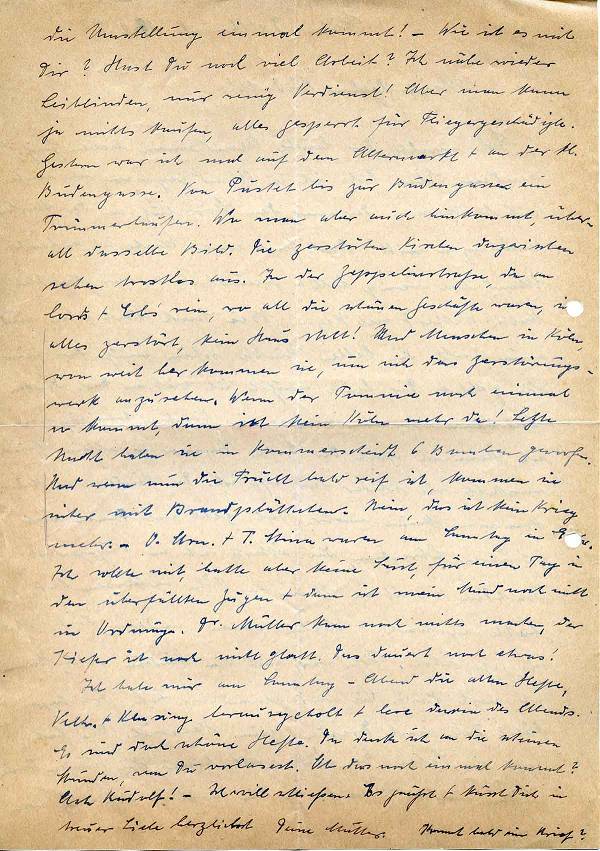 die Umstellung einmal kommt! – Wie ist es mit
Dir? Hast Du noch viel Arbeit? Ich nähe wieder
Leibbinden, nur wenig Verdienst! Aber man kann
ja nichts kaufen, alles gesperrt für Fliegergeschädigte.
Gestern war ich mal auf dem Altermarkt + an der kl.
Budengasse. Von Pustet bis zur Budengasse ein
Trümmerhaufen. Wo man aber auch hinkommt, über-
all dasselbe Bild. Die zerstörten Kirchen dazwischen
sehen trostlos aus. In der Zeppelinstraße, da an
rein, wo all die schönen Geschäfte waren, ist
alles zerstört, kein Haus steht! Und Menschen in Köln,
von weit her kommen sie, um sich das Zerstörungs-
werk anzusehen. Wenn der Tommie noch einmal
so kommt, dann ist kein Köln mehr da! Letzte
Nacht haben sie in Kommerscheidt 6 Bomben geworfen.
Und wenn nun die Frucht bald reif ist, kommen sie
sicher mit Brandplättchen. Nein, das ist kein Krieg
mehr. – O. + T. waren am Sonntag in
Ich sollte mit, hatte aber keine Lust, für einen Tag in
den überfüllten Zügen + dann ist mein Mund noch nicht
in Ordnung. Dr. Müller kann noch nichts machen, der
Kiefer ist noch nicht glatt. Das dauert noch etwas!
Ich habe mir am Sonntag-Abend die alten Hefte,
Velh. + Klasing herausgeholt + lese darin des Abends.
Es sind doch schöne Hefte. Da denke ich an die schönen
Stunden, wenn Du vorlasest. Ob das noch einmal kommt?
Ach Rudolf! – Ich will schließen. Es grüßt + küsst Dich in
treuer Liebe herzlichst Deine Mutter. Kommt bald ein Brief?